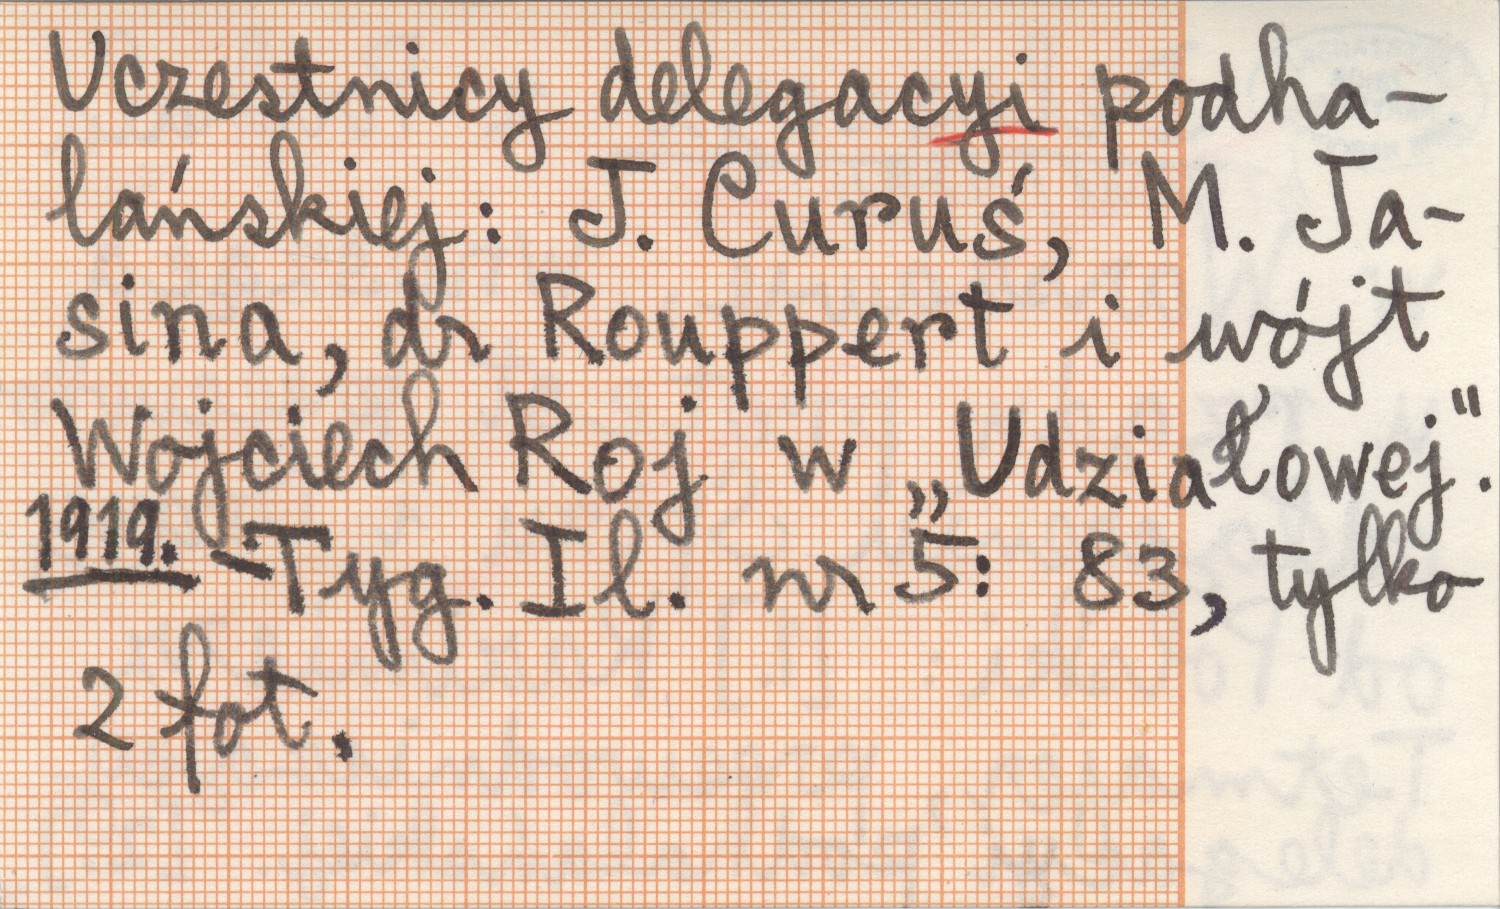 Uczestnicy delegacyi podha-
lańskiej: J. Curuś, M. Ja-
sina, dr Rouppert i wójt
Wojciech Roj w „Udziałowej".
1919. - Tyg. Il. nr 5: 83, tylko
2 fot.